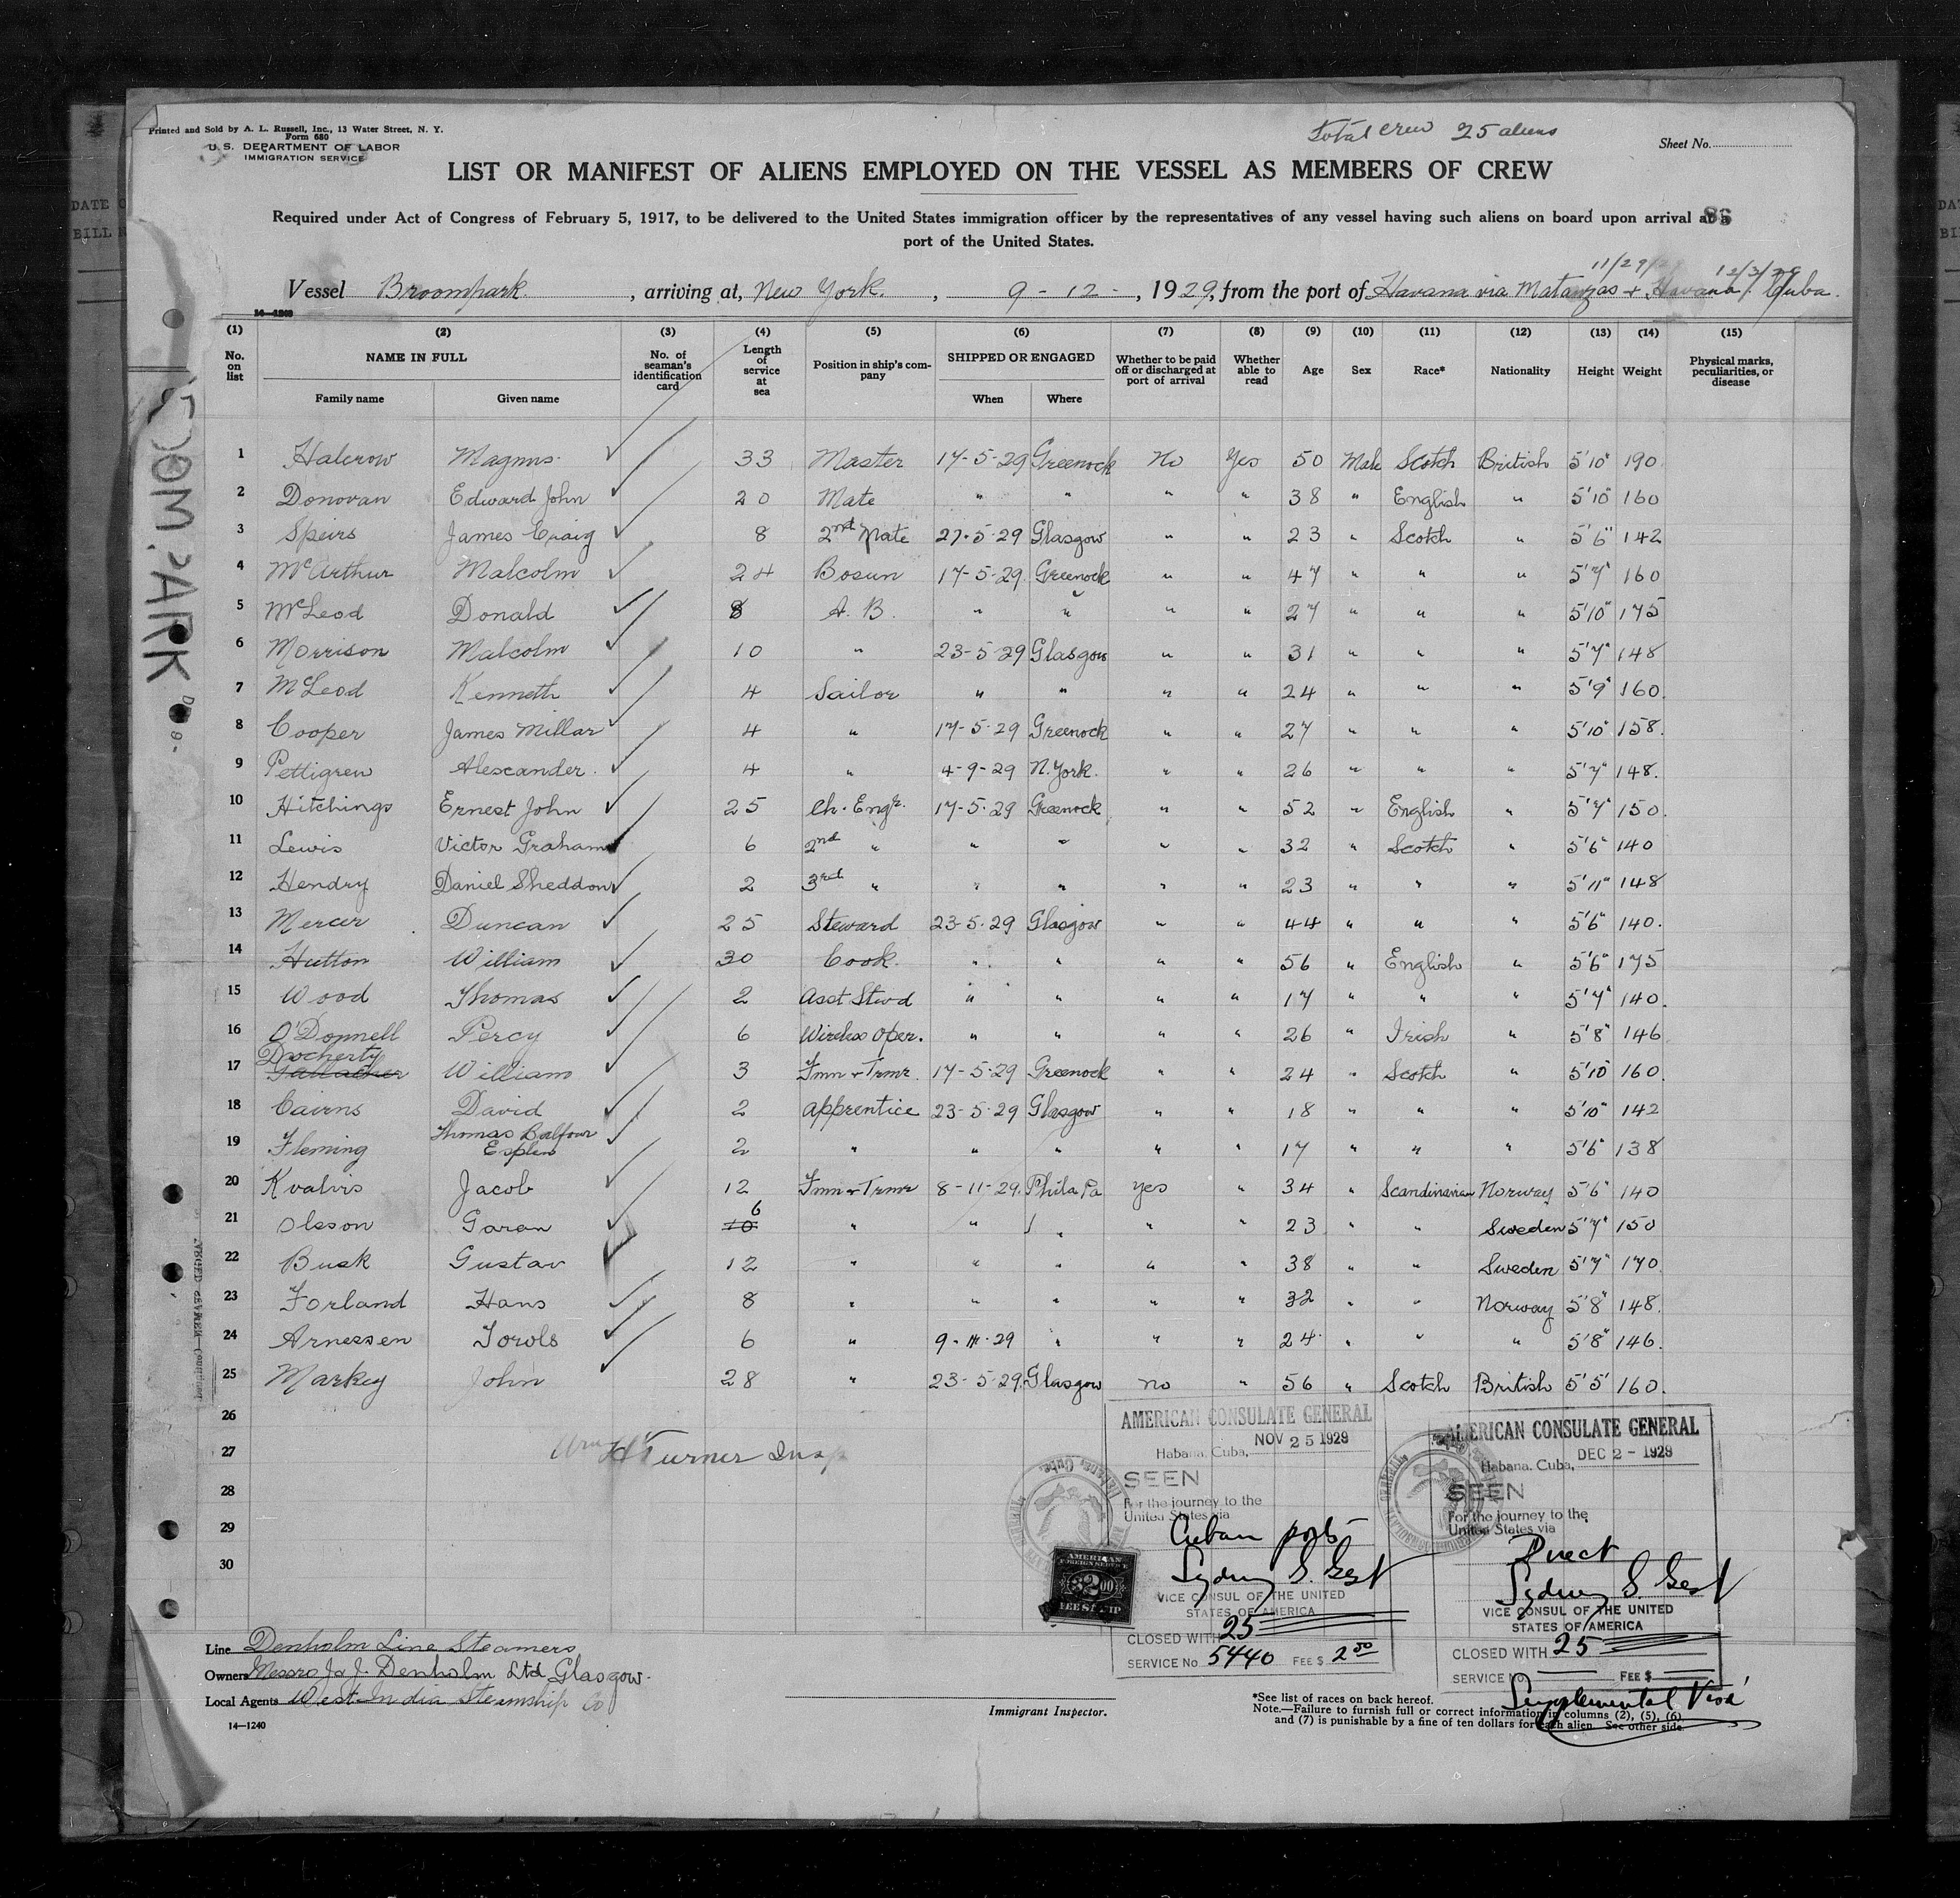 Printed and Sold by A. L. Russell, Inc., 13 Water Street, N. Y.
Form 680
U. S. DEPARTMENT OF LABOR
IMMIGRATION SERVICE
Total crew 25 aliens
Sheet No.
LIST OR MANIFEST OF ALIENS EMPLOYED ON THE VESSEL AS MEMBERS OF CREW
Required under Act of Congress of February 5, 1917, to be delivered to the United States immigration officer by the representatives of any vessel having such aliens on board upon arrival at a
port of the United States.
86
11/29/29 12/3/29
Vessel Broompark. , arriving at, New York. , 9 - 12 - , 1929, from the port of Havana via Matanzas + Havana / Cuba.
14-1240
(1) (2) (3) (4) (5) (6) (7) (8) (9) (10) (11) (12) (13) (14) (15)
No. on list NAME IN FULL No. of seaman's identification card Length of service at sea Position in ship's company SHIPPED OR ENGAGED Whether to be paid off or discharged at port of arrival Whether able to read Age Sex Race* Nationality Height Weight Physical marks, peculiarities, or disease
Family name Given name When Where
1 Halcrow Magnus 33 Master 17-5-29 Greenock No Yes 50 Male Scotch British 5'10" 190
2 Donovan Edward John 20 Mate " " " " 38 " English " 5'10" 160
3 Speirs James Craig 8 2nd Mate 27.5.29 Glasgow " " 23 " Scotch " 5'6" 142
4 McArthur Malcolm 24 Bosun 17-5-29 Greenock " " 47 " " " 5'7" 160
5 McLeod Donald 8 A. B. " " " " 27 " " " 5'10" 175
6 Morrison Malcolm 10 " 23-5-29 Glasgow " " 31 " " " 5'7" 148
7 McLeod Kenneth 4 Sailor " " " " 24 " " " 5'9" 160.
8 Cooper James Millar 4 " 17-5-29 Greenock " " 27 " " " 5'10" 158.
9 Pettigrew Alescander. 4 " 4-9-29 N. York. " " 26 " " " 5'7" 148.
10 Hitchings Ernest John 25 Ch. Engr. 17-5-29 Greenock " " 52 " English " 5'7" 150.
11 Lewis Victor Graham 6 2nd " " " " " 32 " Scotch " 5'6" 140
12 Hendry Daniel Sheddon 2 3rd " " " " " 23 " " " 5'11" 148
13 Mercer Duncan 25 Steward 23-5-29 Glasgow " " 44 " " " 5'6" 140.
14 Hutton William 30 Cook. " " " " 56 " English " 5'6" 175
15 Wood Thomas 2 Asst Stwd " " " " 17 " " " 5'7" 140.
16 O'Donnell Percy 6 Wireless Oper. " " " " 26 " Irish " 5'8" 146
Docherty
17 Gallacher William 3 Fmn + Trmr. 17-5-29 Greenock " " 24 " Scotch " 5'10 160.
18 Cairns David 2 Apprentice 23-5-29 Glasgow " " 18 " " " 5'10" 142
19 Fleming Thomas Balfour Esplin 2 " " " " " 17 " " " 5'6" 138
20 Kvalvis Jacob 12 Fmn + Trmr 8-11-29. Phila Pa Yes " 34 " Scandinavian Norway 5'6" 140
21 Olsson Garan 10 6 " " " " " 23 " " Sweden 5'7" 150
22 Busk Gustav 12 " " " " " 38 " " Sweden 5'7" 170
23 Forland Hans 8 " " " " " 32 " " Norway 5'8" 148.
24 Arnessen Torols 6 " 9-11-29 " " " 24 " " " 5'8" 146.
25 Markey John 28 " 23-5-29. Glasgow no " 56 " Scotch British 5'5' 160.
26
27
28
29
30
Wm H Turner Insp
AMERICAN CONSULATE GENERAL
Habana, Cuba, NOV 25 1929
SEEN
For the journey to the
United States via
Cuban ports
Sydney S. Gest
VICE CONSUL OF THE UNITED
STATES OF AMERICA
CLOSED WITH 25
SERVICE No. 5440 FEE $ 2.00
AMERICAN
FOREIGN SERVICE
$2.00
FEE STAMP
AMERICAN CONSULATE GENERAL
Habana. Cuba, DEC 2 - 1929
SEEN
For the journey to the
United States via
Direct
Sydney S. Gest
VICE CONSUL OF THE UNITED
STATES OF AMERICA
CLOSED WITH 25
SERVICE No. FEE $
Supplemental Visa
Line Denholm Line Steamers
Owners Messrs J & J. Denholm Ltd Glasgow.
Local Agents West India Steamship Co
14-1240
Immigrant Inspector.
*See list of races on back hereof.
Note.—Failure to furnish full or correct information in columns (2), (5), (6),
and (7) is punishable by a fine of ten dollars for each alien. See other side.